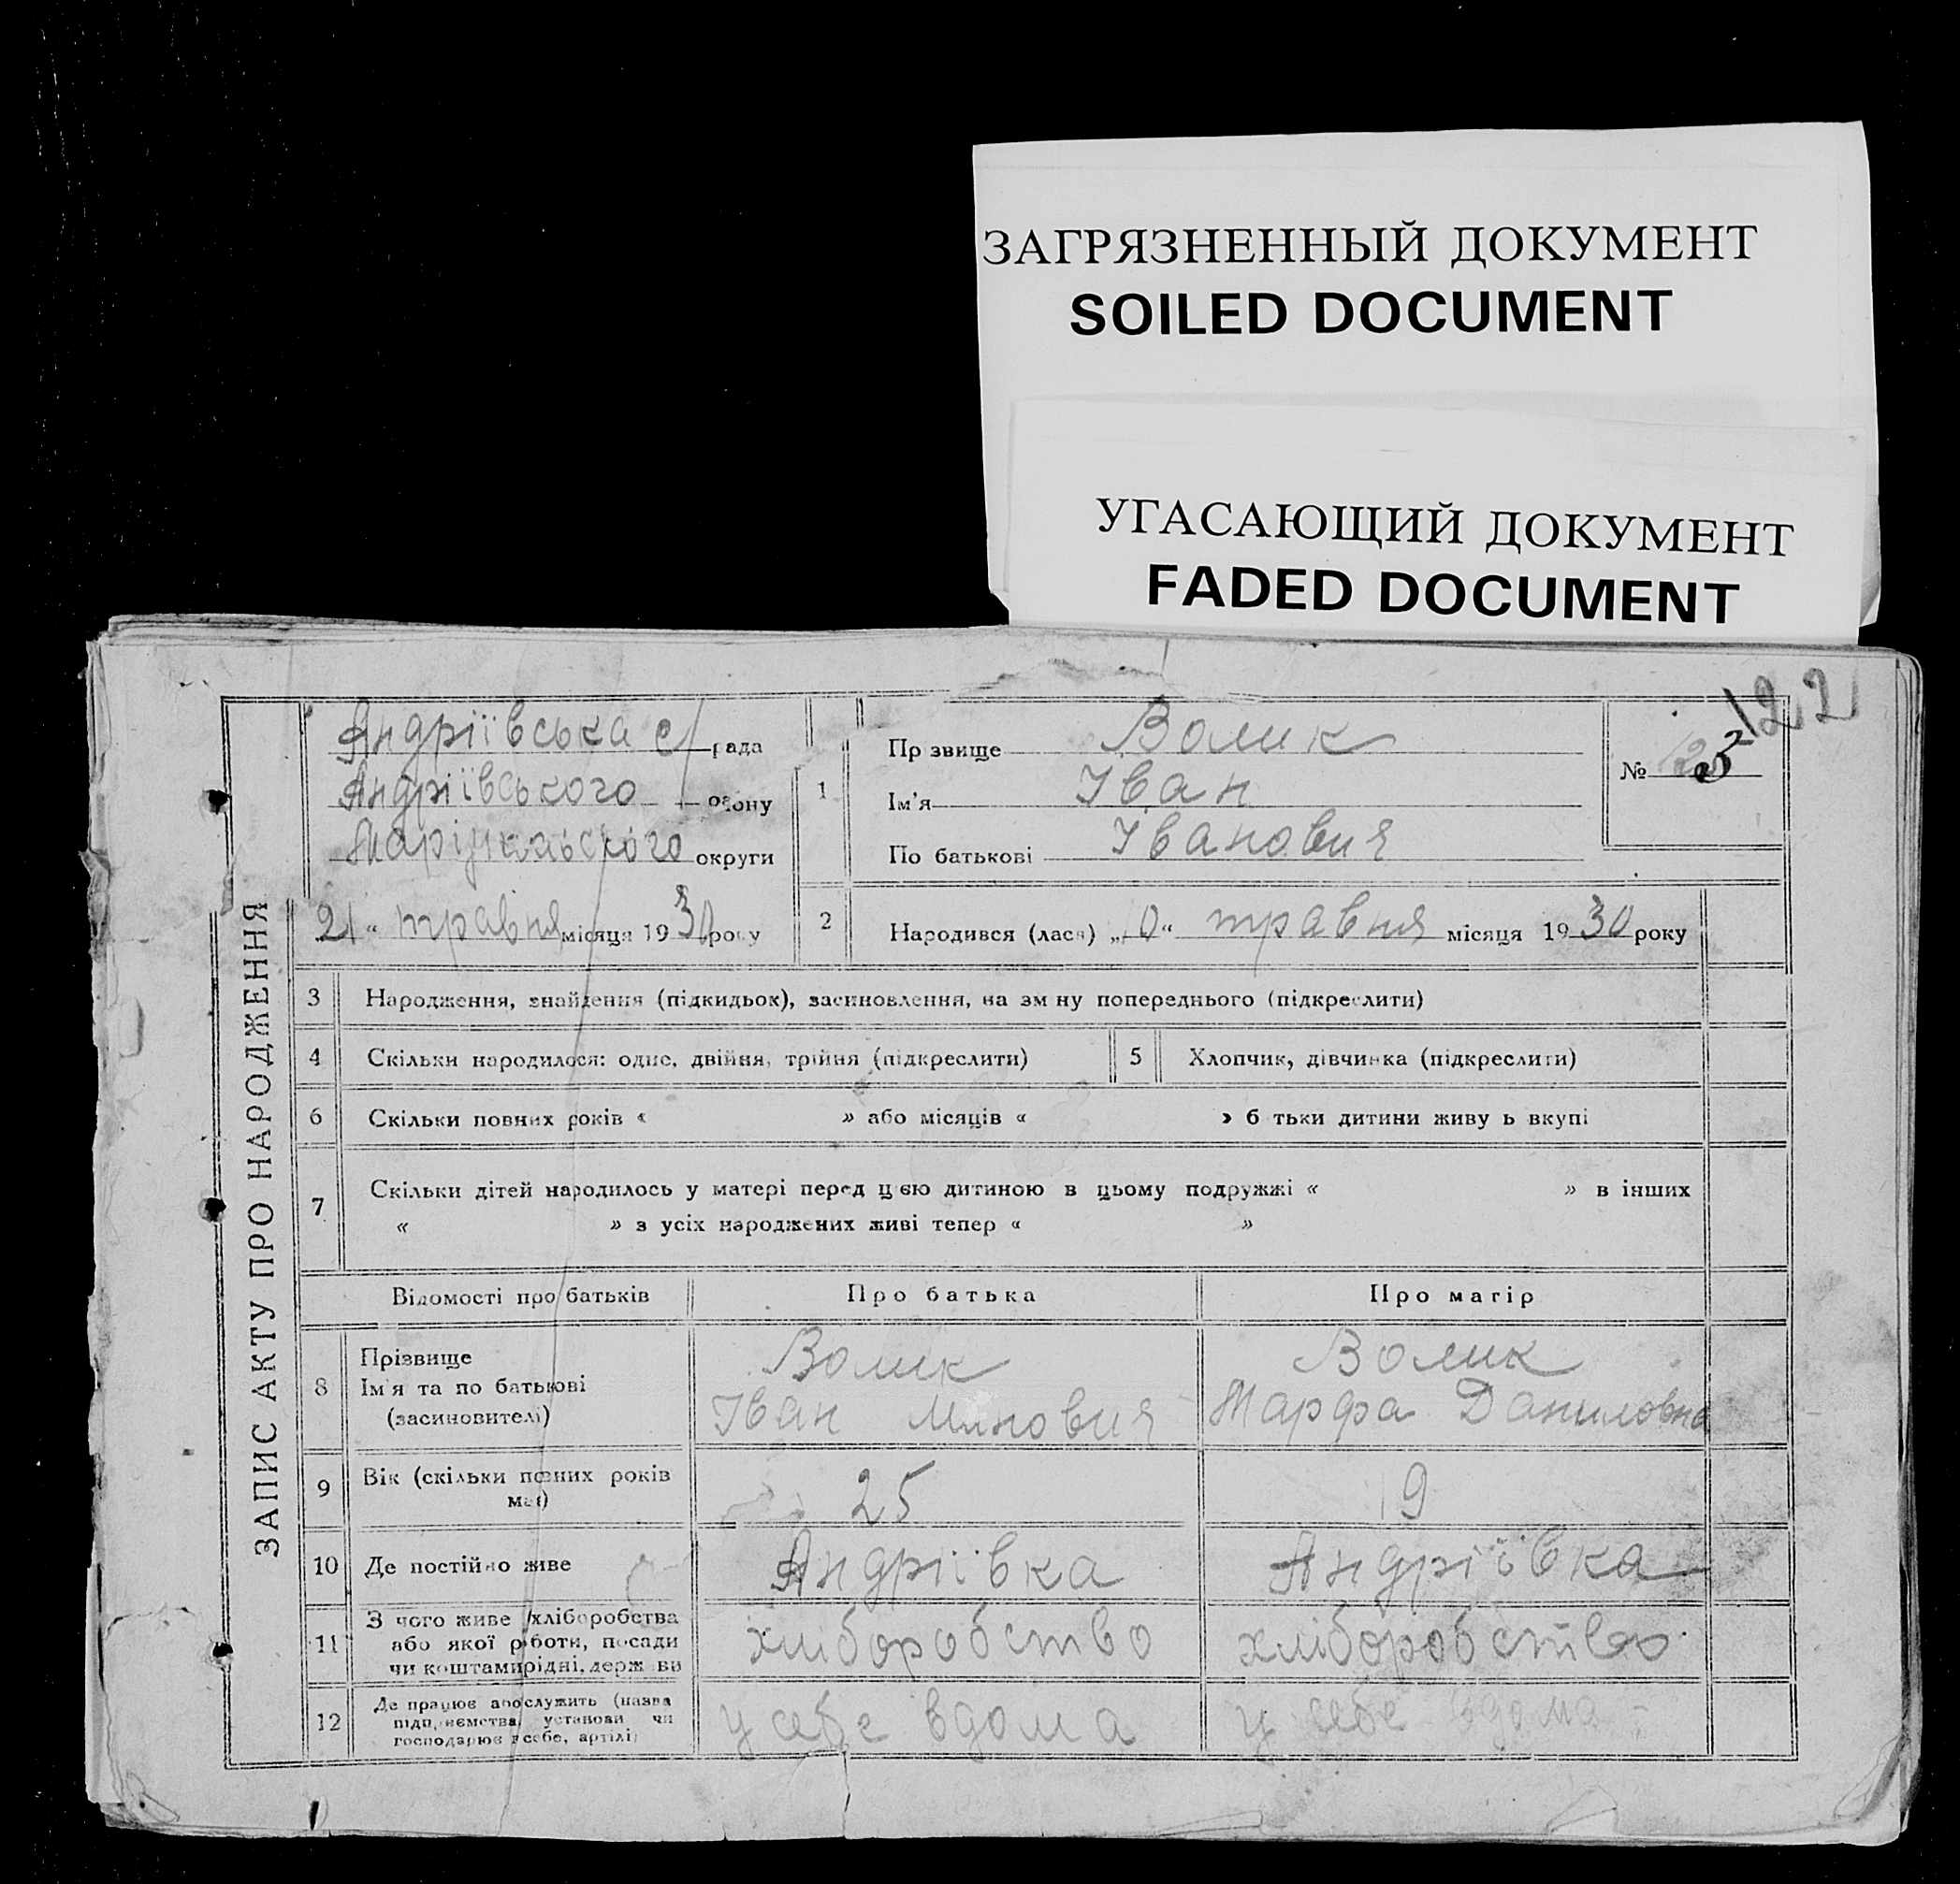 ЗАГРЯЗНЕННЫЙ ДОКУМЕНТ
SOILED DOCUMENT
УГАСАЮЩИЙ ДОКУМЕНТ
FADED DOCUMENT
122
ЗАПИС АКТУ ПРО НАРОДЖЕННЯ
Андріївська с/рада
Андріївського району
Маріупольського округи
21 “ травня місяця 1930 року
1 Прізвище Волик
Ім'я Іван
По батькові Іванович
№ 123
2 Народився (лася) „10“ травня місяця 1930 року
3 Народження, знайдення (підкидьок), засиновлення, на зміну попереднього (підкреслити)
4 Скільки народилося: одне, двійня, трійня (підкреслити)
5 Хлопчик, дівчинка (підкреслити)
6 Скільки повних років « » або місяців « » батьки дитини живуть вкупі
7 Скільки дітей народилось у матері перед цією дитиною в цьому подружжі « » в інших
« » з усіх народжених живі тепер « »
Відомості про батьків Про батька Про матір
8 Прізвище
Ім'я та по батькові
(засиновителі)
Волик
Іван Минович
Волик
Марфа Даниловна
9 Вік (скільки повних років
має)
25 19
10 Де постійно живе Андріївка Андріївка
11 З чого живе /хліборобства
або якої роботи, посади
чи коштами рідні, держави
хліборобство хліборобство
12 Де працює або служить (назва
підприємства, установи чи
господарює у себе, артілі)
у себе вдома у себе вдома